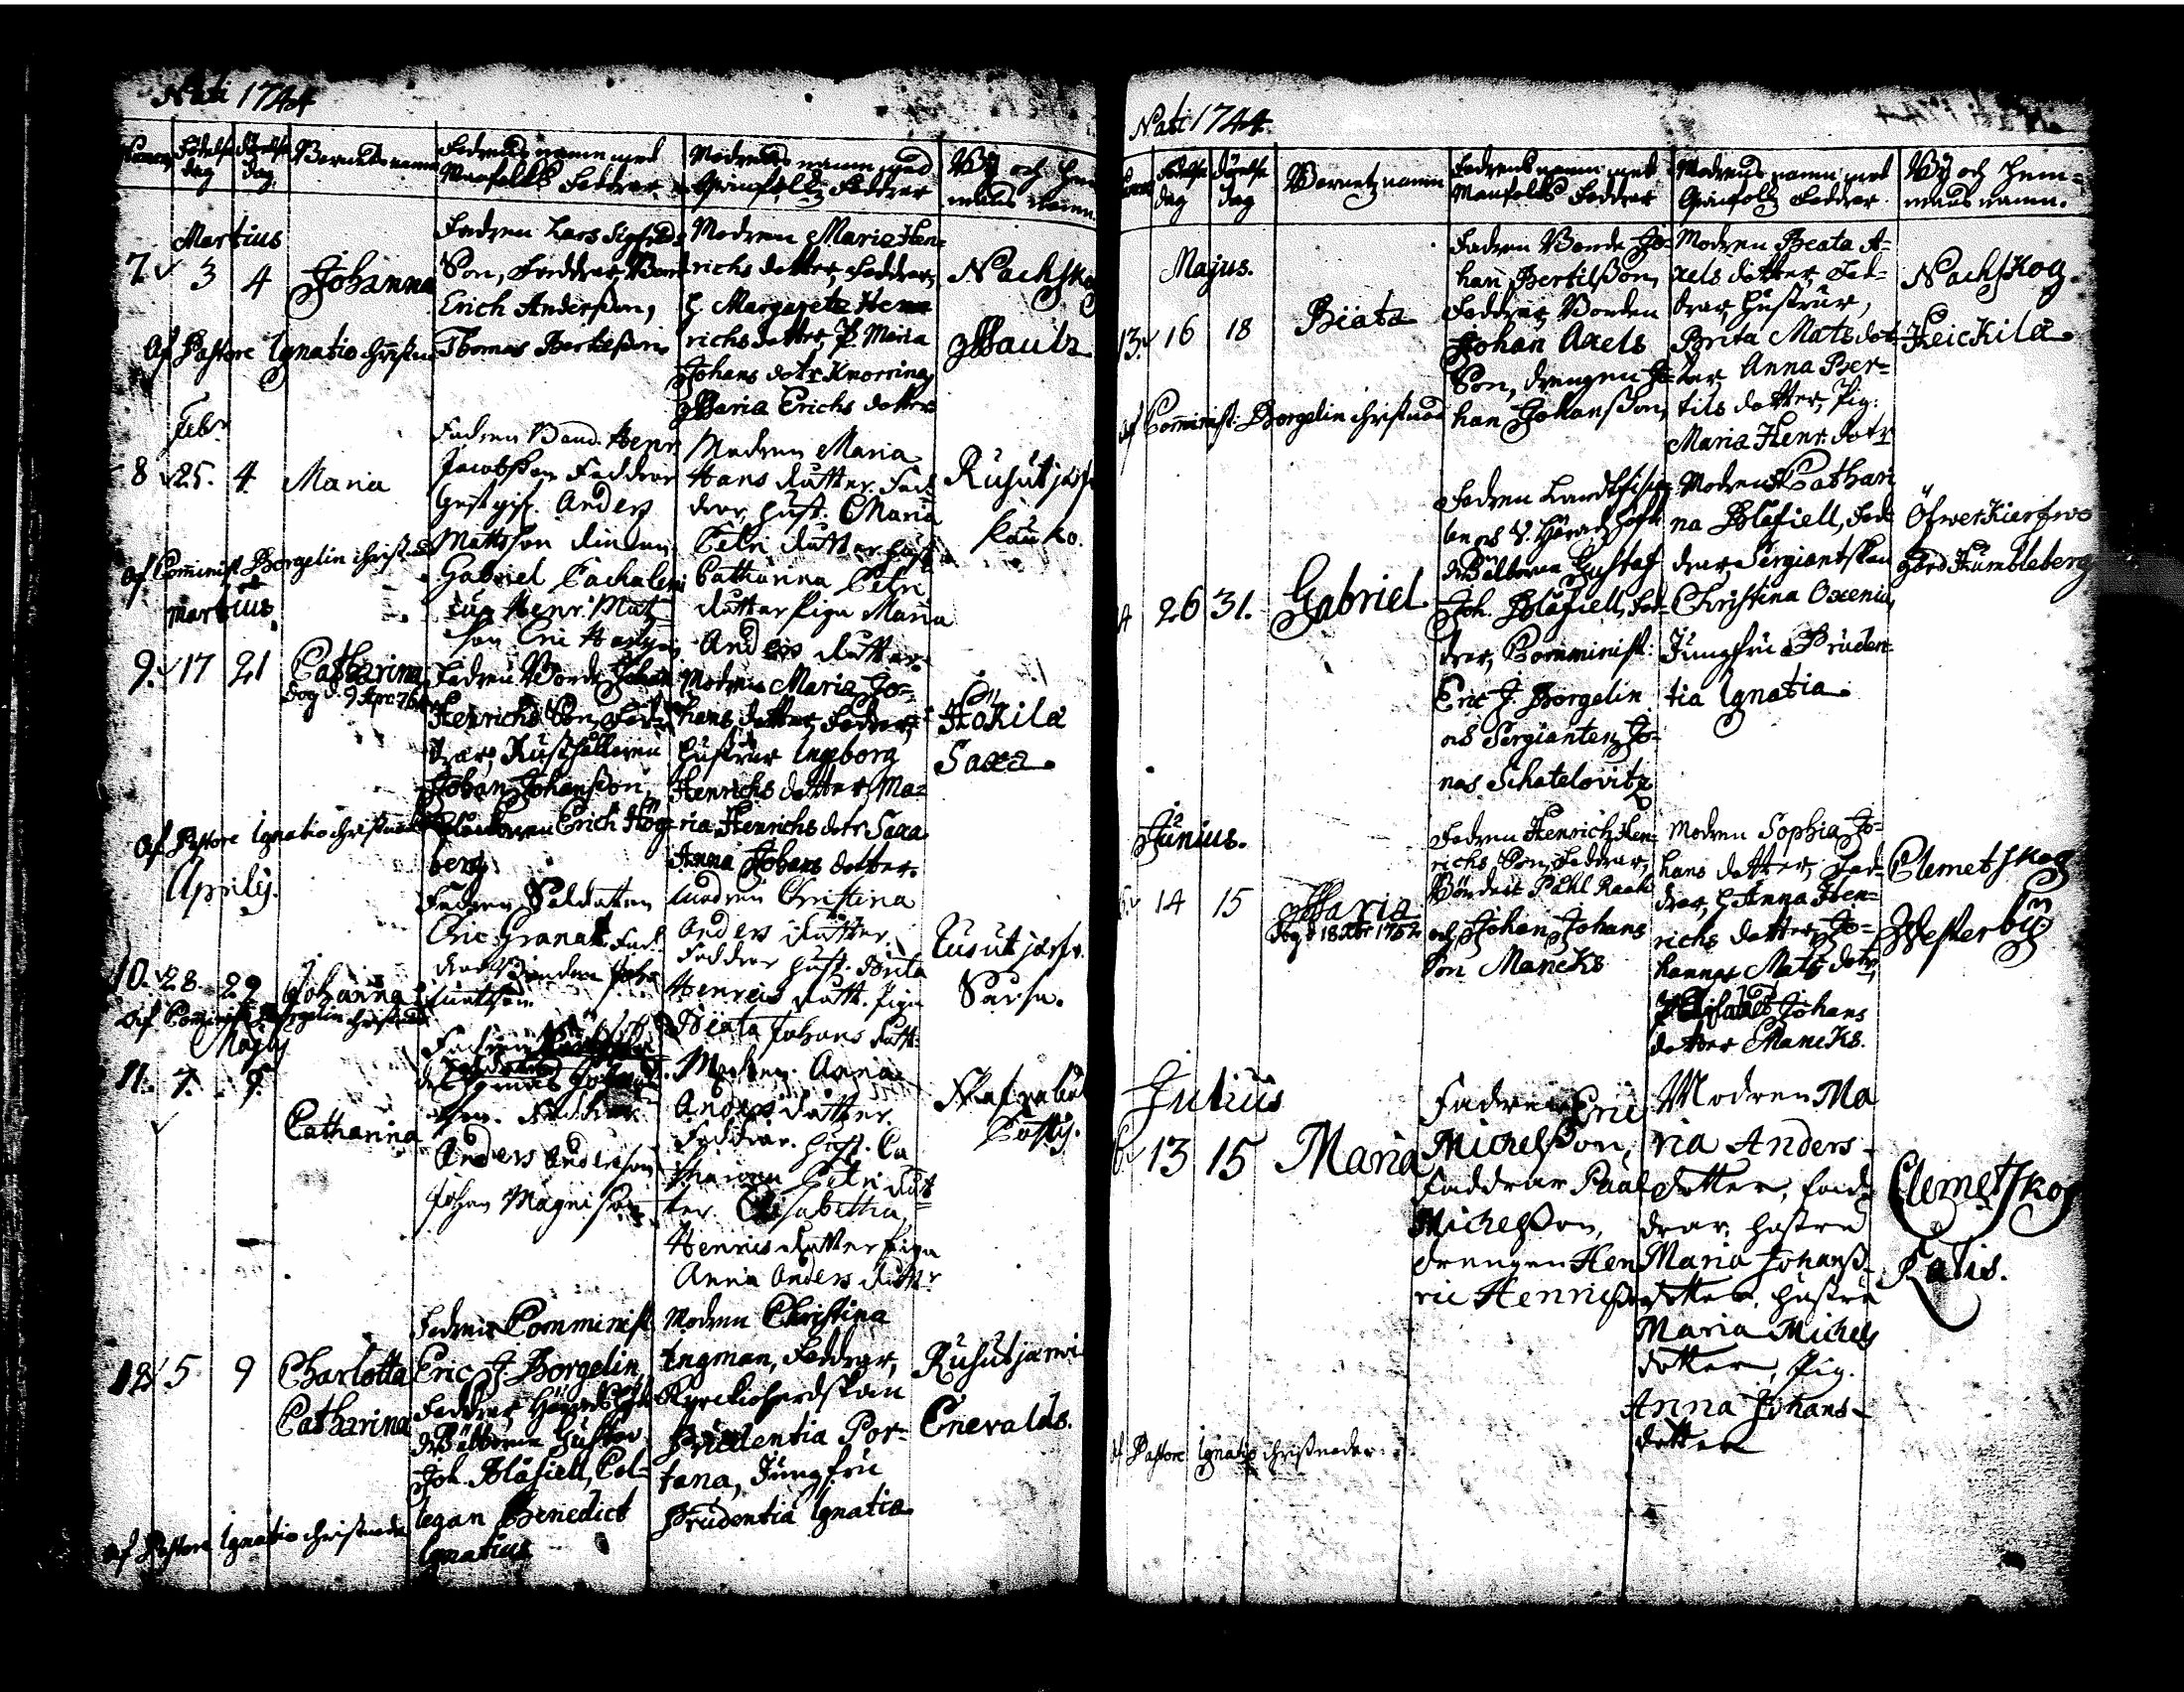 Nati 1744
Födelse dag
Döpelse dag
Barnets namn
Fadrens namn med Manfolks Faddrar
Modrens namn med Qvinfolks Faddrar
By och Hemmans namn
Martius
7. 3 4 Johanna
Fadren Lars Sigfrids
Son, Faddrar, Bond
Erich Andersson,
Thomas Bertilsson
Modren Maria Hen-
richs dotter, Faddrar,
H. Margareta Hen
richs dotter, P. Maria
Johans dotr Knorring
Maria Erichs dotter
Nachskog
Pauls
Af Pastore Ignatio Christnad
Febr.
8 25. 4 Maria
Fadren Bond. Henr.
Jacobsson Faddrar
Gästgif. Anders
Mattsson
Gabriel
Henr. Mats
son Eric
Modren Maria
Hans dutter. Fad
drar Hust. Maria
Petri dutter Hust
Catharina Petri
dutter Piga Maria
Anders dutter
Rusutjerf
Kauko.
Af Comminist. Borgelin Christnad
Martius.
9. 17 21 Catharina
Fadren Bonde Johan
Henrichs Son, Fad-
drar, Rusthållaren
Johan Johansson,
Erich Hög-
berg
Modren Maria Jo-
hans dotter, Faddrar,
Hustrur Ingeborg
Henrichs dotter, Ma-
ria Henrichs dotr Saxa
Anna Johans dotter.
Hökila
Saxa.
Af Pastore Ignatio christnad
Aprilis.
10. 28. 29 Johanna
Fadren Soldaten
Eric Granat Fad
drar Bonden
Modren Christina
Anders dutter.
Faddrar Hust. Brita
Henrics dutt. Piga
Beata Johans dutt.
Rusutjerf.
Saxsa.
Af Comminist Borgelin christnad
Majus
11. 7. 9. Catharina
Fadren
Faddrar
Anders Andersson
Johan Magni Son
Modren. Anna
Anders dutter.
Faddrar. Hust. Ca
tharina Petri dut
ter. Elisabetha
Henrics dutter Piga
Anna Anders dutter
12 5 9 Charlotta
Catharina
Fadren Comminist.
Eric J. Borgelin,
Faddrar, Häradshöfd.
Välborne Gustav
Joh. Blåfiell, Col-
legan Benedict
Ignatius
Modren Christina
Ingman, Faddrar,
Kyrckioherdskan
Prudentia Por-
tana, Jungfru
Prudentia Ignatia
Rusutjärwi
Enevalds.
Af Pastore Ignatio christnade
Nati 1744
Födelse dag
Döpelse dag
Barnets namn
Fadrens namn med Manfolks Faddrar
Modrens namn med Qvinfolks Faddrar
By och Hem-
mans namn.
Majus.
13. 16 18 Beata
Fadren Bonde Jo-
han Bertilsson,
Faddrar, Bonden
Johan Axels
Son, drengen Jo-
han Johansson,
Modren Beata A-
xels dotter, Fad-
drar, Hustrur,
Brita Mats dot-
ter, Anna Ber-
tils dotter, Pig.
Maria Henr. dotr
Nachskog.
Heickilä
Af Comminist. Borgelin christnad
14 26 31. Gabriel
Fadren
Välborne Gustaf
Joh. Blåfiell, Fad-
drar, Comminist.
Eric J. Borgelin
ock Sergianten Jo-
nas Schatelovitz
Modren Cathari
na Blåfiell, Fad-
drar, Sergiantskan
Christina Oxenia,
Jungfru Pruden-
tia Ignatia
Öfwerkierfwo
gård Humbleberg
Junius.
15. 14 15 Maria
Fadren Henrich Hen-
richs Son, Faddrar,
Bönder Påhl Raak
och Johan Johans
Son Mancks
Modren Sophia Jo-
hans dotter, Fad-
drar, H. Anna Hen-
richs dotter, Jo-
hannas Mats dotr,
Elisabet Johans
dotter Mancks.
Clemetskog
Westerby
Julius
13 15 Maria
Fadren Eric
Michelsson,
Faddrar Paal
Michelsson,
drengen Hen
ric Henricsson
Modren Ma
ria Anders-
dotter, Fad-
drar, hustru
Maria Johans-
dotter, hustru
Maria Michels
dotter, Pig.
Anna Johans-
dotter
Clemetskog
Katis.
Af Pastore Ignatio christnader.